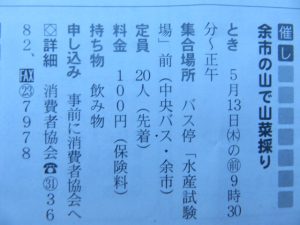 催し
余市の山で山菜採り
とき 5月13日㈭の㈠9時30
分〜正午
集合場所 バス停「水産試験
場」前(中央バス・余市)
定員 20人(先着)
料金 100円(保険料)
持ち物 飲み物
申し込み 事前に消費者協会へ
◇詳細 消費者協会☎㉛36
82、FAX㉓7978